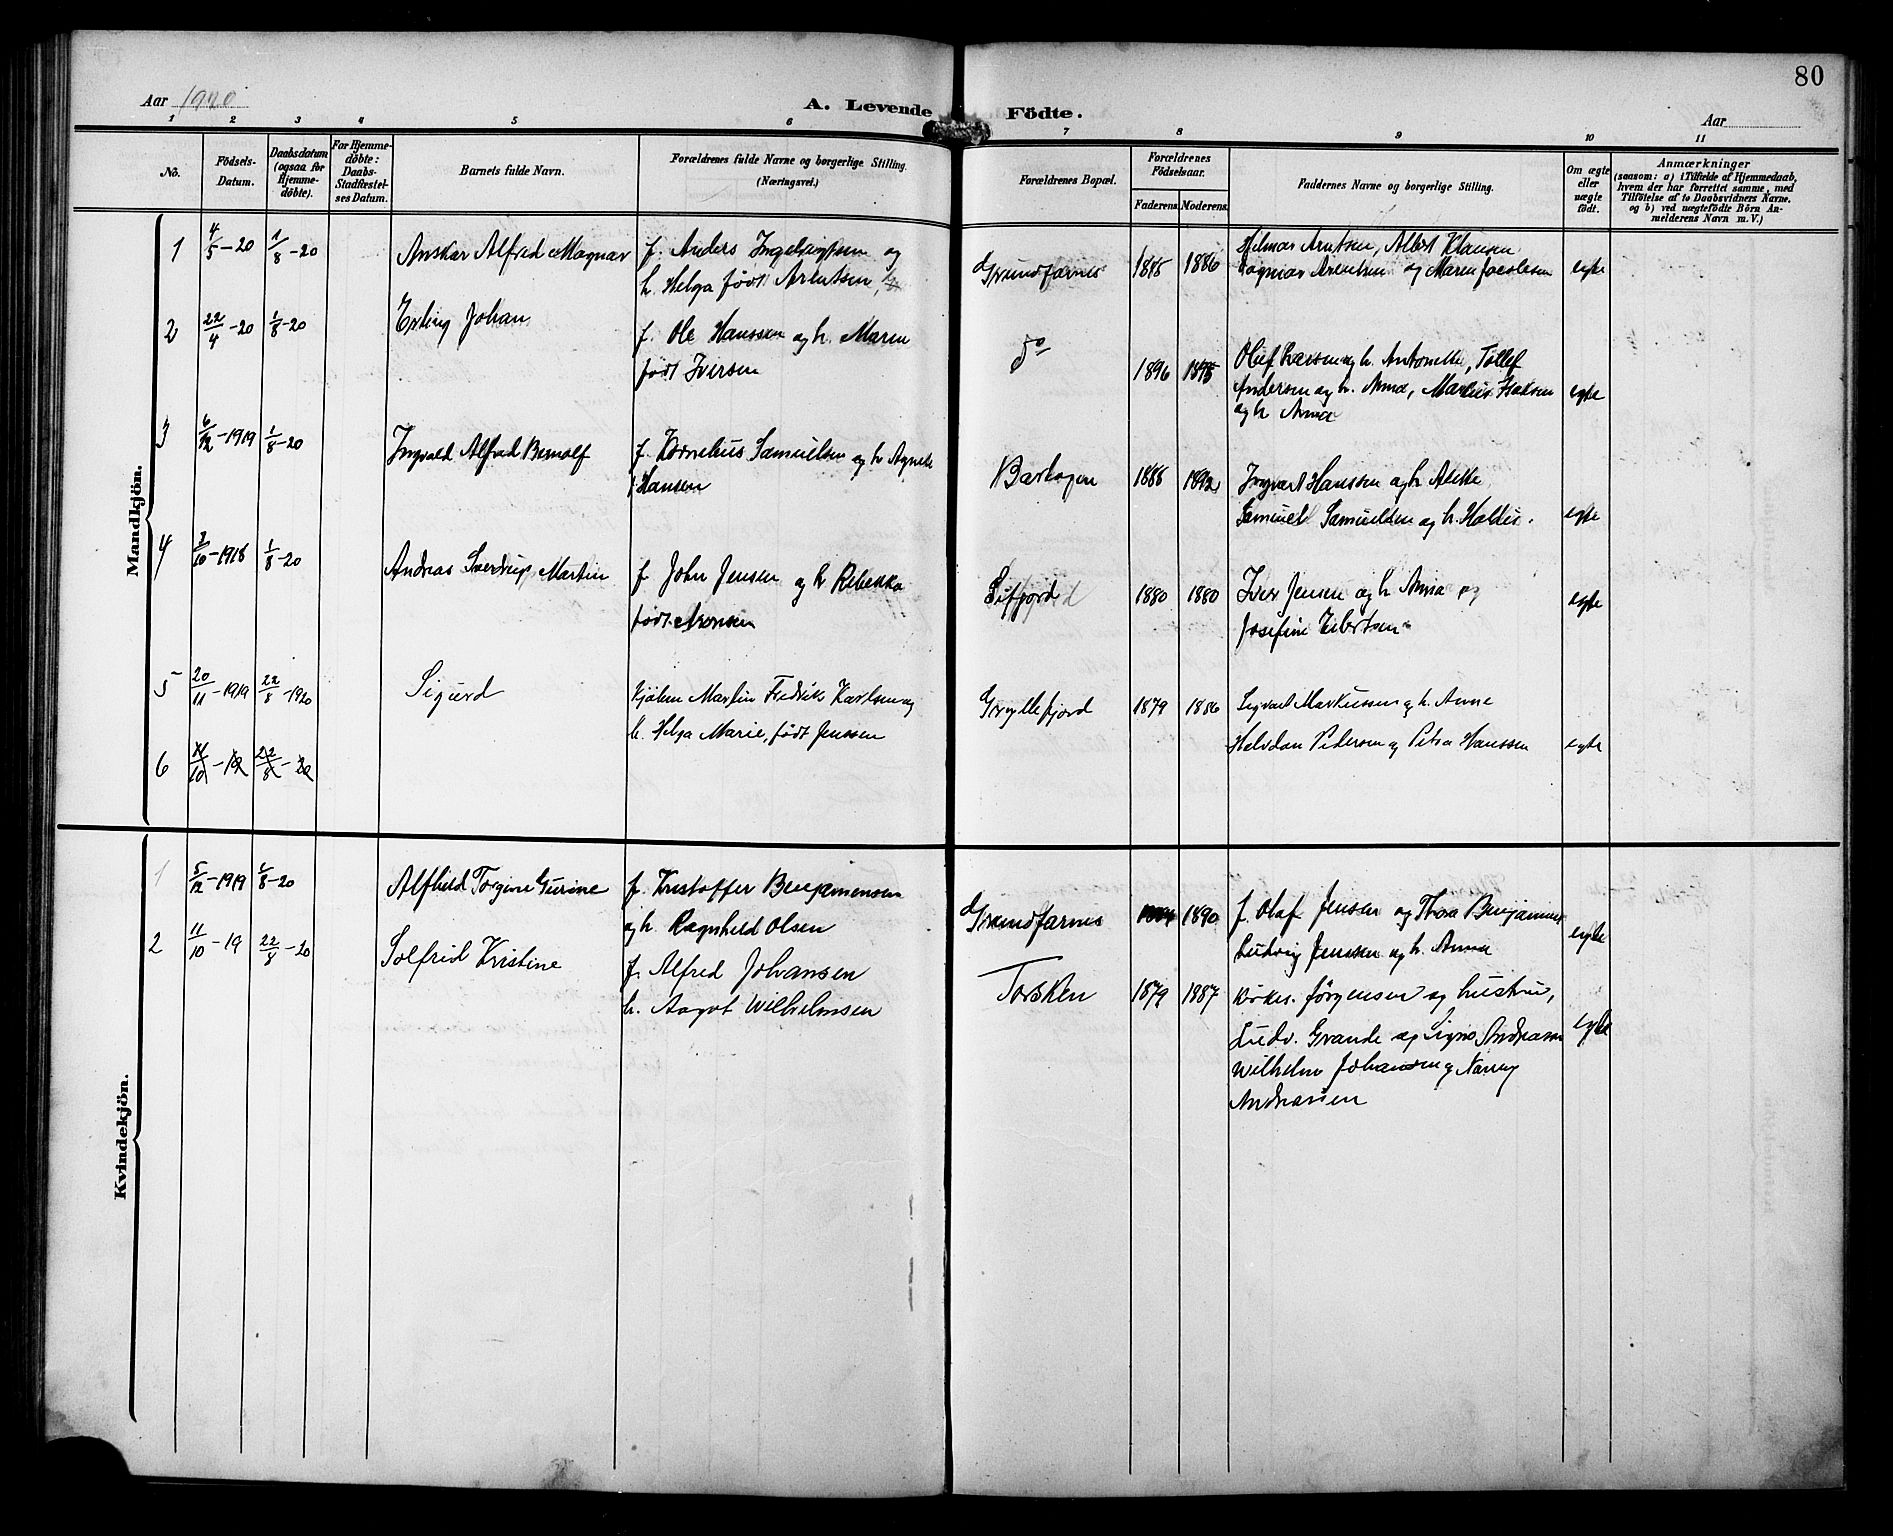 80
Aar 1920
A. Levende Födte.
Aar
1 2 3 4 5 6 7 8 9 10 11
No.
Födsels-
Datum.
Daabsdatum
(ogsaa for
Hjemme-
döbte).
For Hjemme-
döbte:
Daabs-
Stadfæstel-
ses Datum.
Barnets fulde Navn.
Forældrenes fulde Navne og borgerlige Stilling.
(Næringsvei.)
Forældrenes Bopæl.
Forældrenes
Födselsaar.
Faderens. Moderens.
Faddernes Navne og borgerlige Stilling.
Om ægte
eller
uægte
födt.
Anmærkninger
(saasom: a) i Tilfælde af Hjemmedaab,
hvem der har forrettet samme, med
Tilföielse af to Daabsvidners Navne,
og b) ved uægtefödte Börn An-
melderens Navn m. V.)
Mandkjön.
1 4/5-20 1/8-20 Anskar Alfred Magnar f. Anders Ingebrigtsen og
h. Helga født Arentsen, Grundfarnes 1885 1886 Hilmar Arntsen, Albert Klausen
Dagmar Arentsen og Maren Jacobsen egte
2 22/4-20 1/8-20 Erling Johan f. Ole Hanssen og h. Maren
født Iversen do 1896 1895 Oluf Larsen og h. Antonette, Tollef
Andersen og h. Anna, Marius Isaksen
og h Anna egte
3 6/12-1919 1/8-20 Ingvald Alfred Bernolf f. Kornelius Samuelsen og h Agnete
f Hansen Barhogen 1888 1892 Ingvart Hanssen og h Alette
Samuel Samuelsen og h. Haldis. egte
4 3/10-1918 1/8-20 Andreas Sverdrup Martin f John Jensen og h Rebekka
født Aronsen Sifjord 1880 1880 Iver Jensen og h Anna og
Josefine Eibertsen egte
5 20/11-1919 22/8-1920 Sigurd Kjøbm Martin Fredrik Karlsen og
h. Helga Marie, født Jenssen Gryllefjord 1879 1886 Sigvart Markussen og h. Anne
Halvdan Pedersen og Petra Hanssen egte
6 11/10-19 22/8-20
Kvindekjön.
1 5/12-1919 1/8-20 Alfhild Torgine Gurine f. Kristoffer Benjaminsen
og h. Ragnhild Olsen Grundfarnes 1890 f. Olaf Jensen og Thora Benjamins
Ludvig Jenssen og h. Anna egte
2 11/10-19 22/8-20 Solfrid Kristine f. Alfred Johansen
h. Aagot Wilhelmsen Torsken 1879 1887 Kirkes. Jørgensen og hustru,
Ludv. Grande og Signe Andreasen
Wilhelm Johansen og Nanny
Andreassen egte